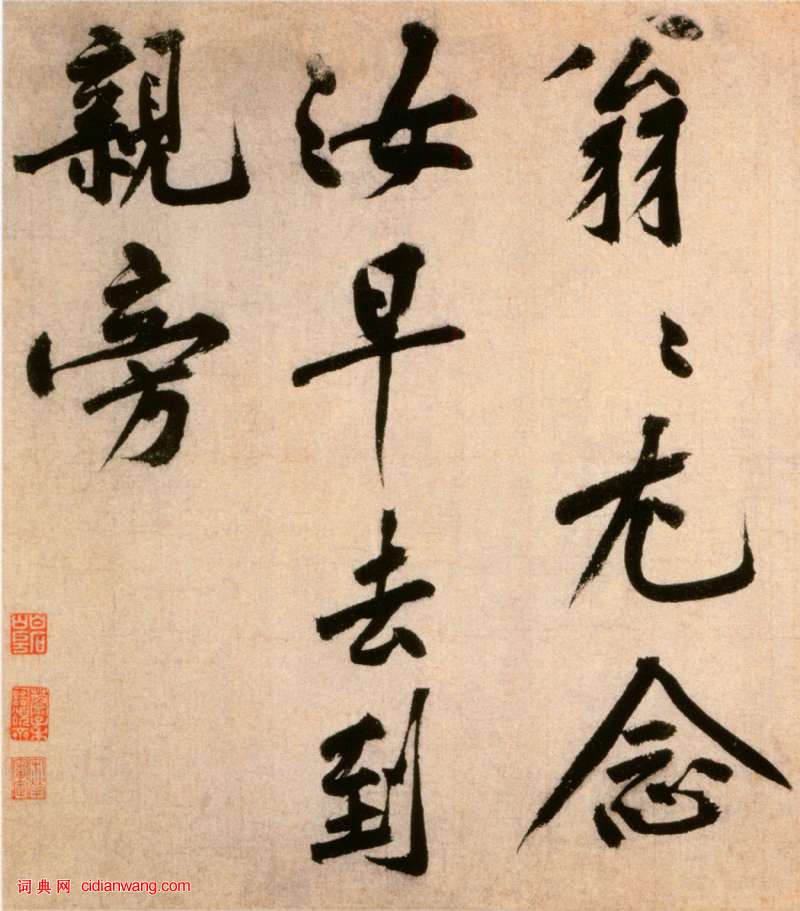 翁〻尤念
汝早去到
親旁
词典网 cidianwang.com